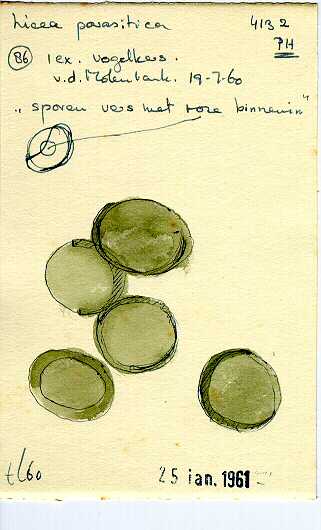 Licea parasitica 4132
PH
86 1 ex. vogelkers.
v.d. Molenbank. 19-7-60
„ sporen vers met roze binnenin "
25 jan. 1961